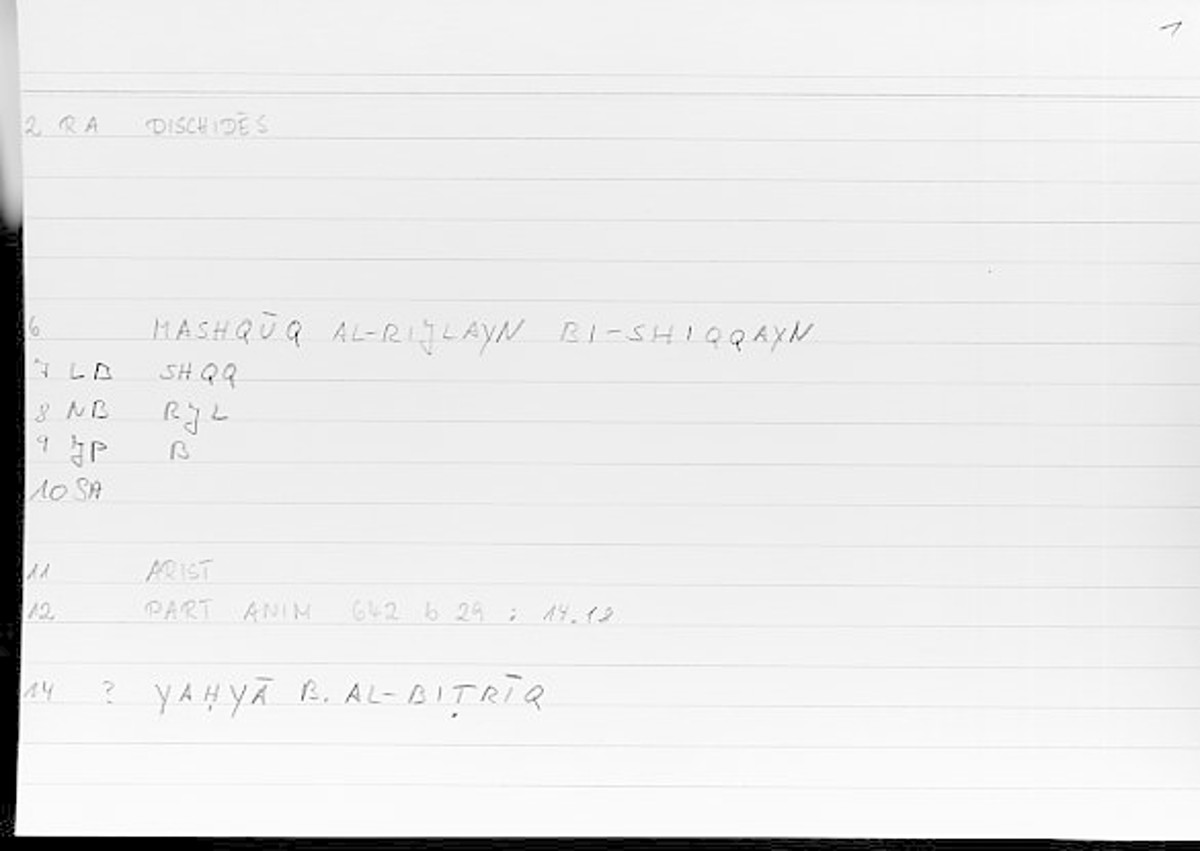 1
2 RA DISCHIDĒS
6 MASHQŪQ AL-RIJLAYN BI-SHIQQAYN
7 LB SHQQ
8 NB RJL
9 JP B
10 SA
11 ARIST
12 PART ANIM 642 b 29 ; 14.12
14 ? YAḤYĀ B. AL-BIṬRĪQ